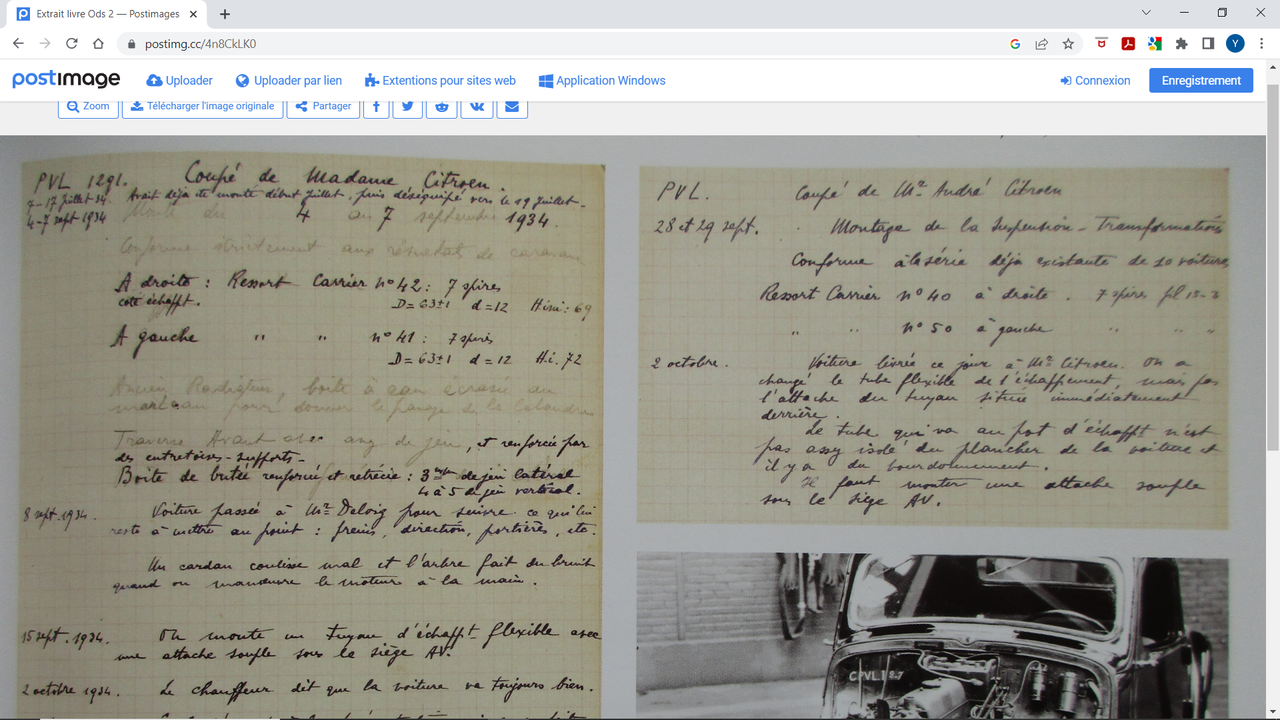 Extrait livre Ods 2 — Postimages
postimg.cc/4n8CkLK0
postimage
Uploader
Uploader par lien
Extentions pour sites web
Application Windows
Connexion
Enregistrement
Zoom
Télécharger l'image originale
Partager
PVL 1291. Coupé de Madame Citroen.
7-17 Juillet 34 Avait déjà été monté début Juillet, puis déséquipé vers le 19 Juillet.
4-7 sept 1934 Monté du 4 au 7 septembre 1934.
Conforme strictement aux résultats de
A droite : Ressort Carrier n° 42 : 7 spires
côté échappt. D = 63±1 d = 12 Hini : 69
A gauche " " n° 41 : 7 spires
D = 63±1 d = 12 Hi. 72
Ancien Radiateur, boîte à eau écrasée au
marteau pour donner le passage de la Calandre
Traverse Avant avec de jeu, et renforcée par
des entretoises-supports.
Boite de butée renforcée et rétrécie : 3 de jeu latéral
4 à 5 de jeu vertical.
8 sept. 1934. Voiture passée à Mr pour suivre ce qui lui
reste à mettre au point : freins, direction, portières, etc.
Un cardan coulisse mal et l'arbre fait du bruit
quand on manœuvre le moteur à la main.
15 sept. 1934. On monte un tuyau d'échappt flexible avec
une attache souple sous le siège AV.
2 octobre 1934. Le chauffeur dit que la voiture va toujours bien.
PVL. Coupé de Mr André Citroen
28 et 29 sept. Montage de la suspension - Transformations
Conforme à la série déja existante de 10 voitures
Ressort Carrier n° 40 à droite. 7 spires
" " n° 50 à gauche " " "
2 octobre. Voiture livrée ce jour à Mr Citroen. On a
changé le tube flexible de l'échappement, mais pas
l'attache du tuyau située immédiatement
derrière.
Le tube qui va au pot d'échappt n'est
pas assez isolé du plancher de la voiture et
il y a du bourdonnement.
Il faut monter une attache souple
sous le siège AV.